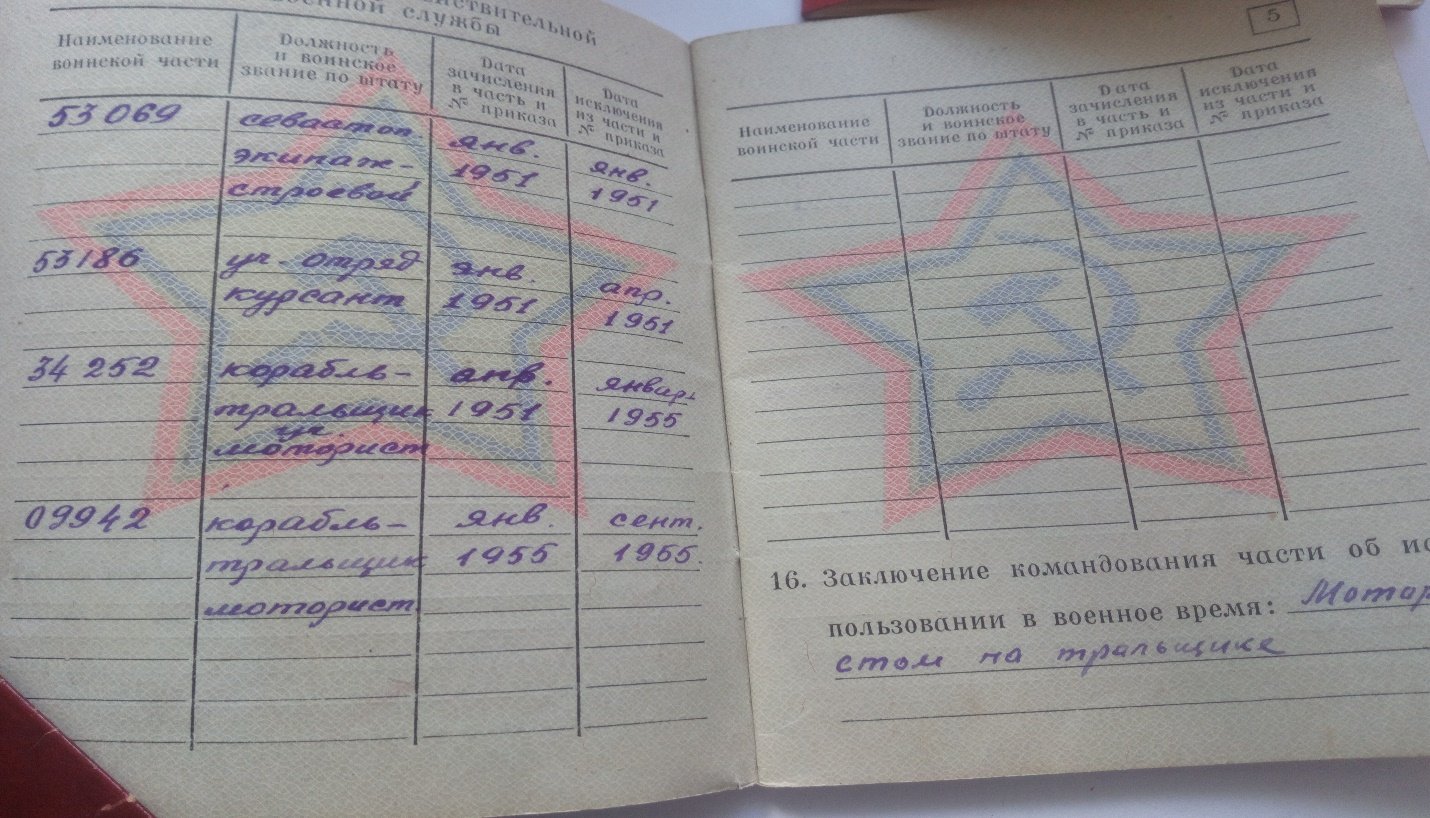 ствительной
военной службы
Наименование
воинской части
Должность
и воинское
звание по штату
Дата
зачисления
в часть и
№ приказа
Дата
исключения
из части и
№ приказа
53069
севастоп.
экипаж-
строевой
янв.
1951
янв.
1951
53186
уч-отряд
курсант
янв.
1951
апр.
1951
34252
корабль-
тральщик
уч.
моторист
апр.
1951
январь
1955
09942
корабль-
тральщик
моторист
янв.
1955
сент.
1955.
5
Наименование
воинской части
Должность
и воинское
звание по штату
Дата
зачисления
в часть и
№ приказа
Дата
исключения
из части и
№ приказа
16. Заключение командования части об ис
пользовании в военное время: Мотор
стом на тральщике